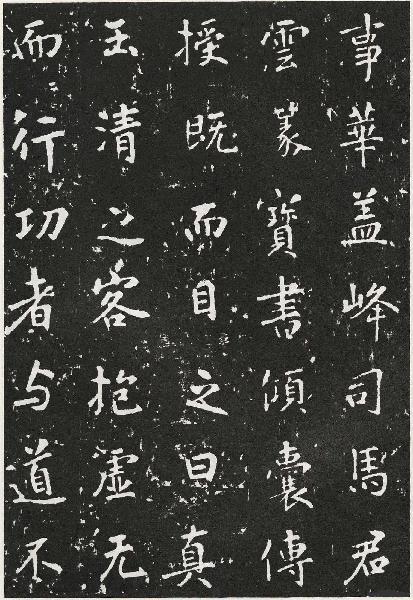 事華盖峰司馬君
雲篆寳書傾囊傳
授既而目之曰真
玉清之客抱虚无
而行功者与道不